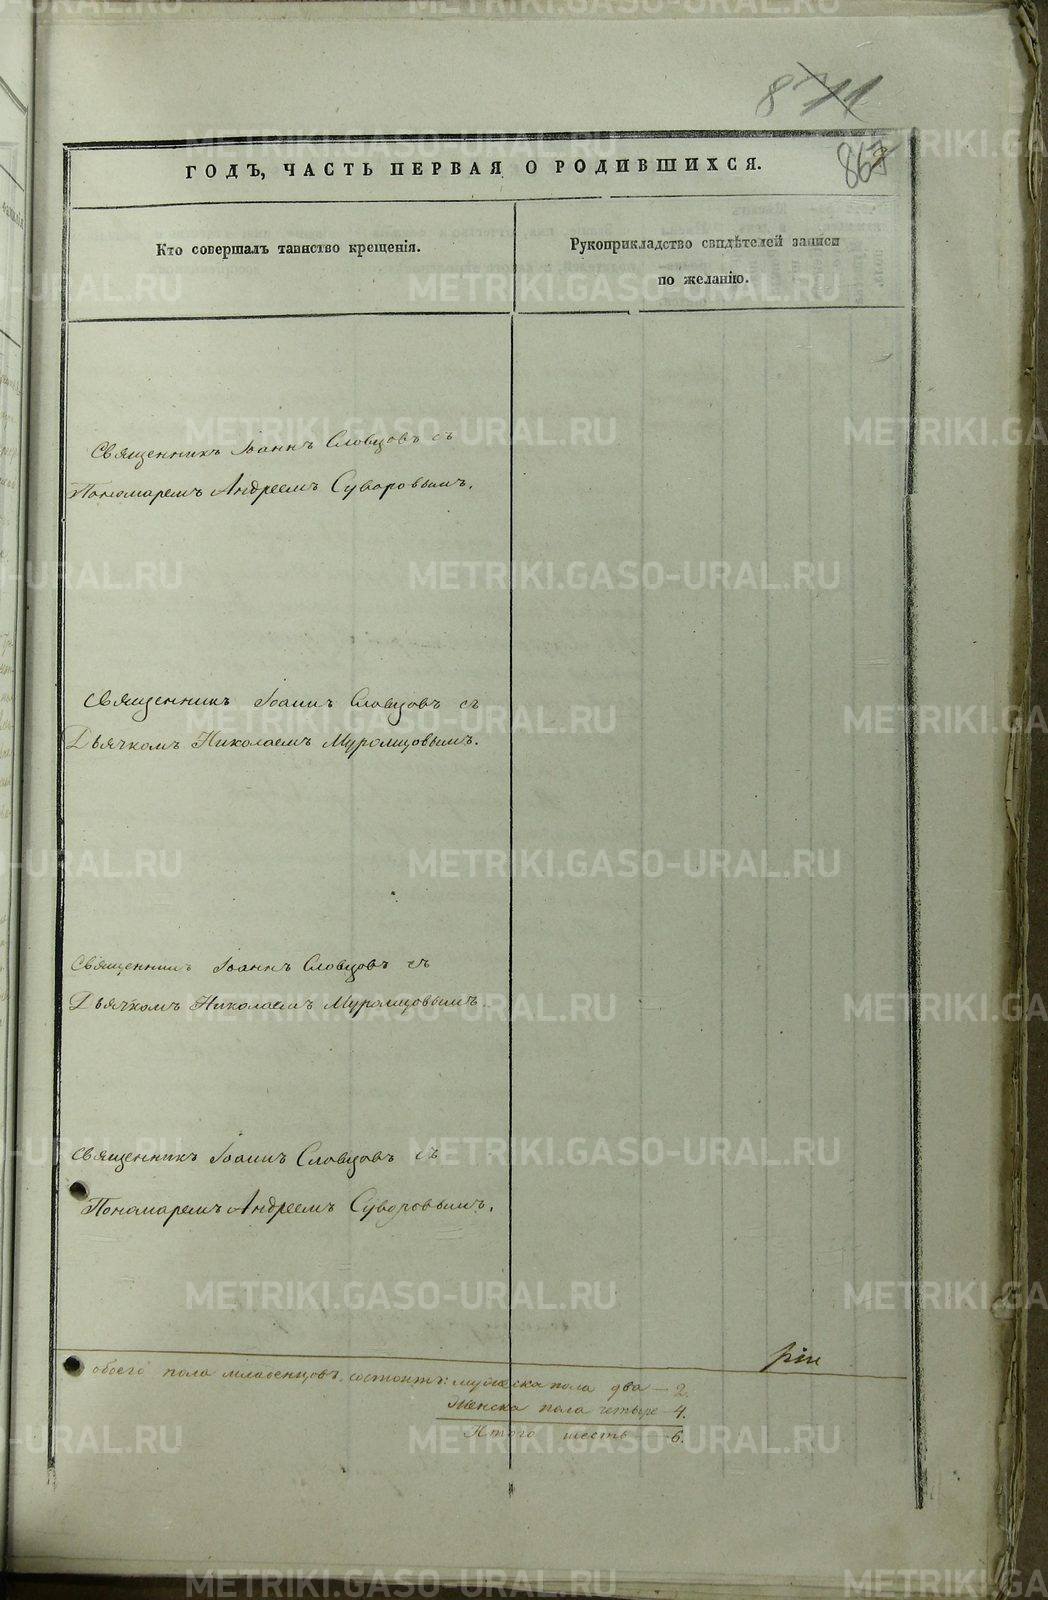 8 11
867
ГОДЪ, ЧАСТЬ ПЕРВАЯ О РОДИВШИХСЯ.
Кто совершалъ таинство крещенія.
Рукоприкладство свидѣтелей записи
по желанію.
Священникъ Іоаннъ Словцовъ съ
Пономаремъ Андреемъ Суворовымъ.
Священникъ Іоаннъ Словцовъ съ
Дьячкомъ Николаемъ Муромцовымъ.
Священникъ Іоаннъ Словцовъ съ
Дьячкомъ Николаемъ Муромцовымъ.
Священникъ Іоаннъ Словцовъ съ
Пономаремъ Андреемъ Суворовымъ.
обоего пола младенцовъ состоитъ: мужеска пола два — 2.
Женска пола четыре — 4.
Итого шесть — 6.
METRIKI.GASO-URAL.RU